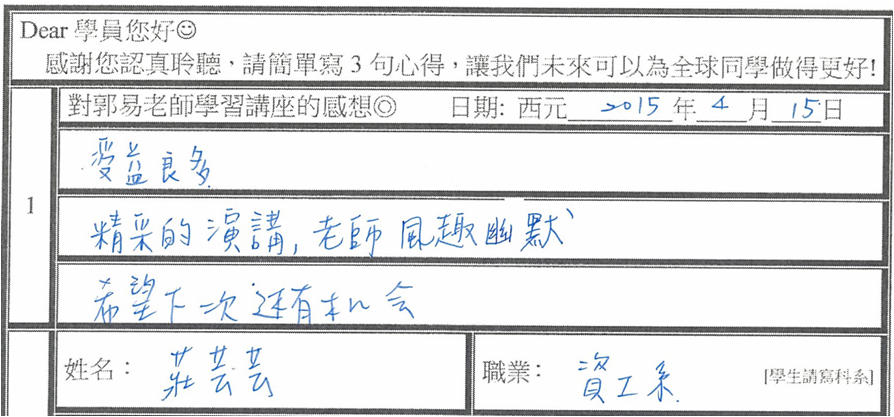 Dear 學員您好☺
感謝您認真聆聽，請簡單寫 3 句心得，讓我們未來可以為全球同學做得更好!
對郭易老師學習講座的感想◎ 日期: 西元 2015 年 4 月 15 日
1
受益良多
精采的演講, 老師風趣幽默
希望下次还有机会
姓名： 莊芸芸 職業： 資工系 [學生請寫科系]